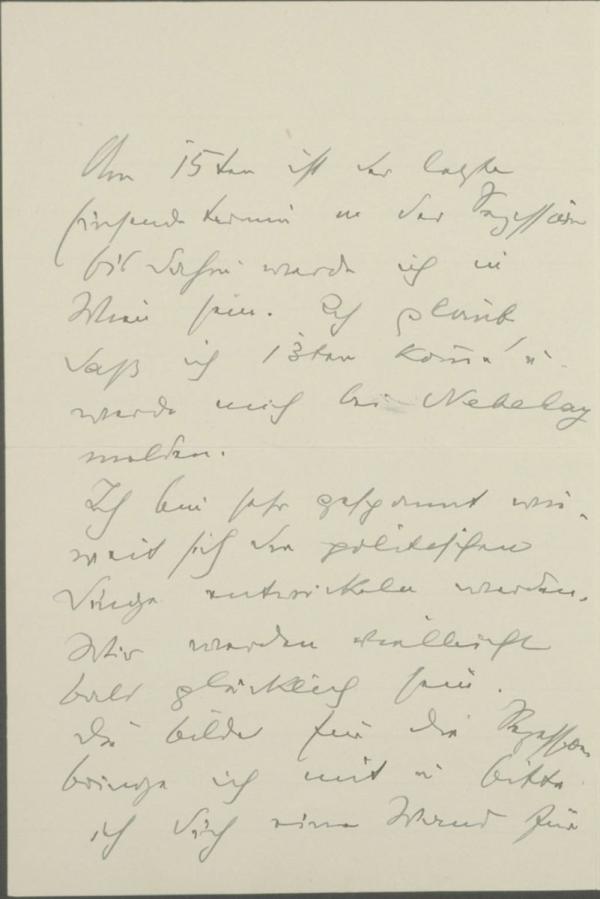 Am 15ten ist der letzte
Einsendetermin in der Sezession
bis dahin werde ich in
Wien sein. Ich glaub
daß ich 13ten komme u.
werde mich bei Nebehay
melden.
Ich bin sehr gespannt wie
weit sich die politischen
Dinge entwickeln werden.
Wir werden vielleicht
bald glücklich sein.
Die Bilder für die Sezession
bringe ich mit u bitte
ich Dich eine Wand für